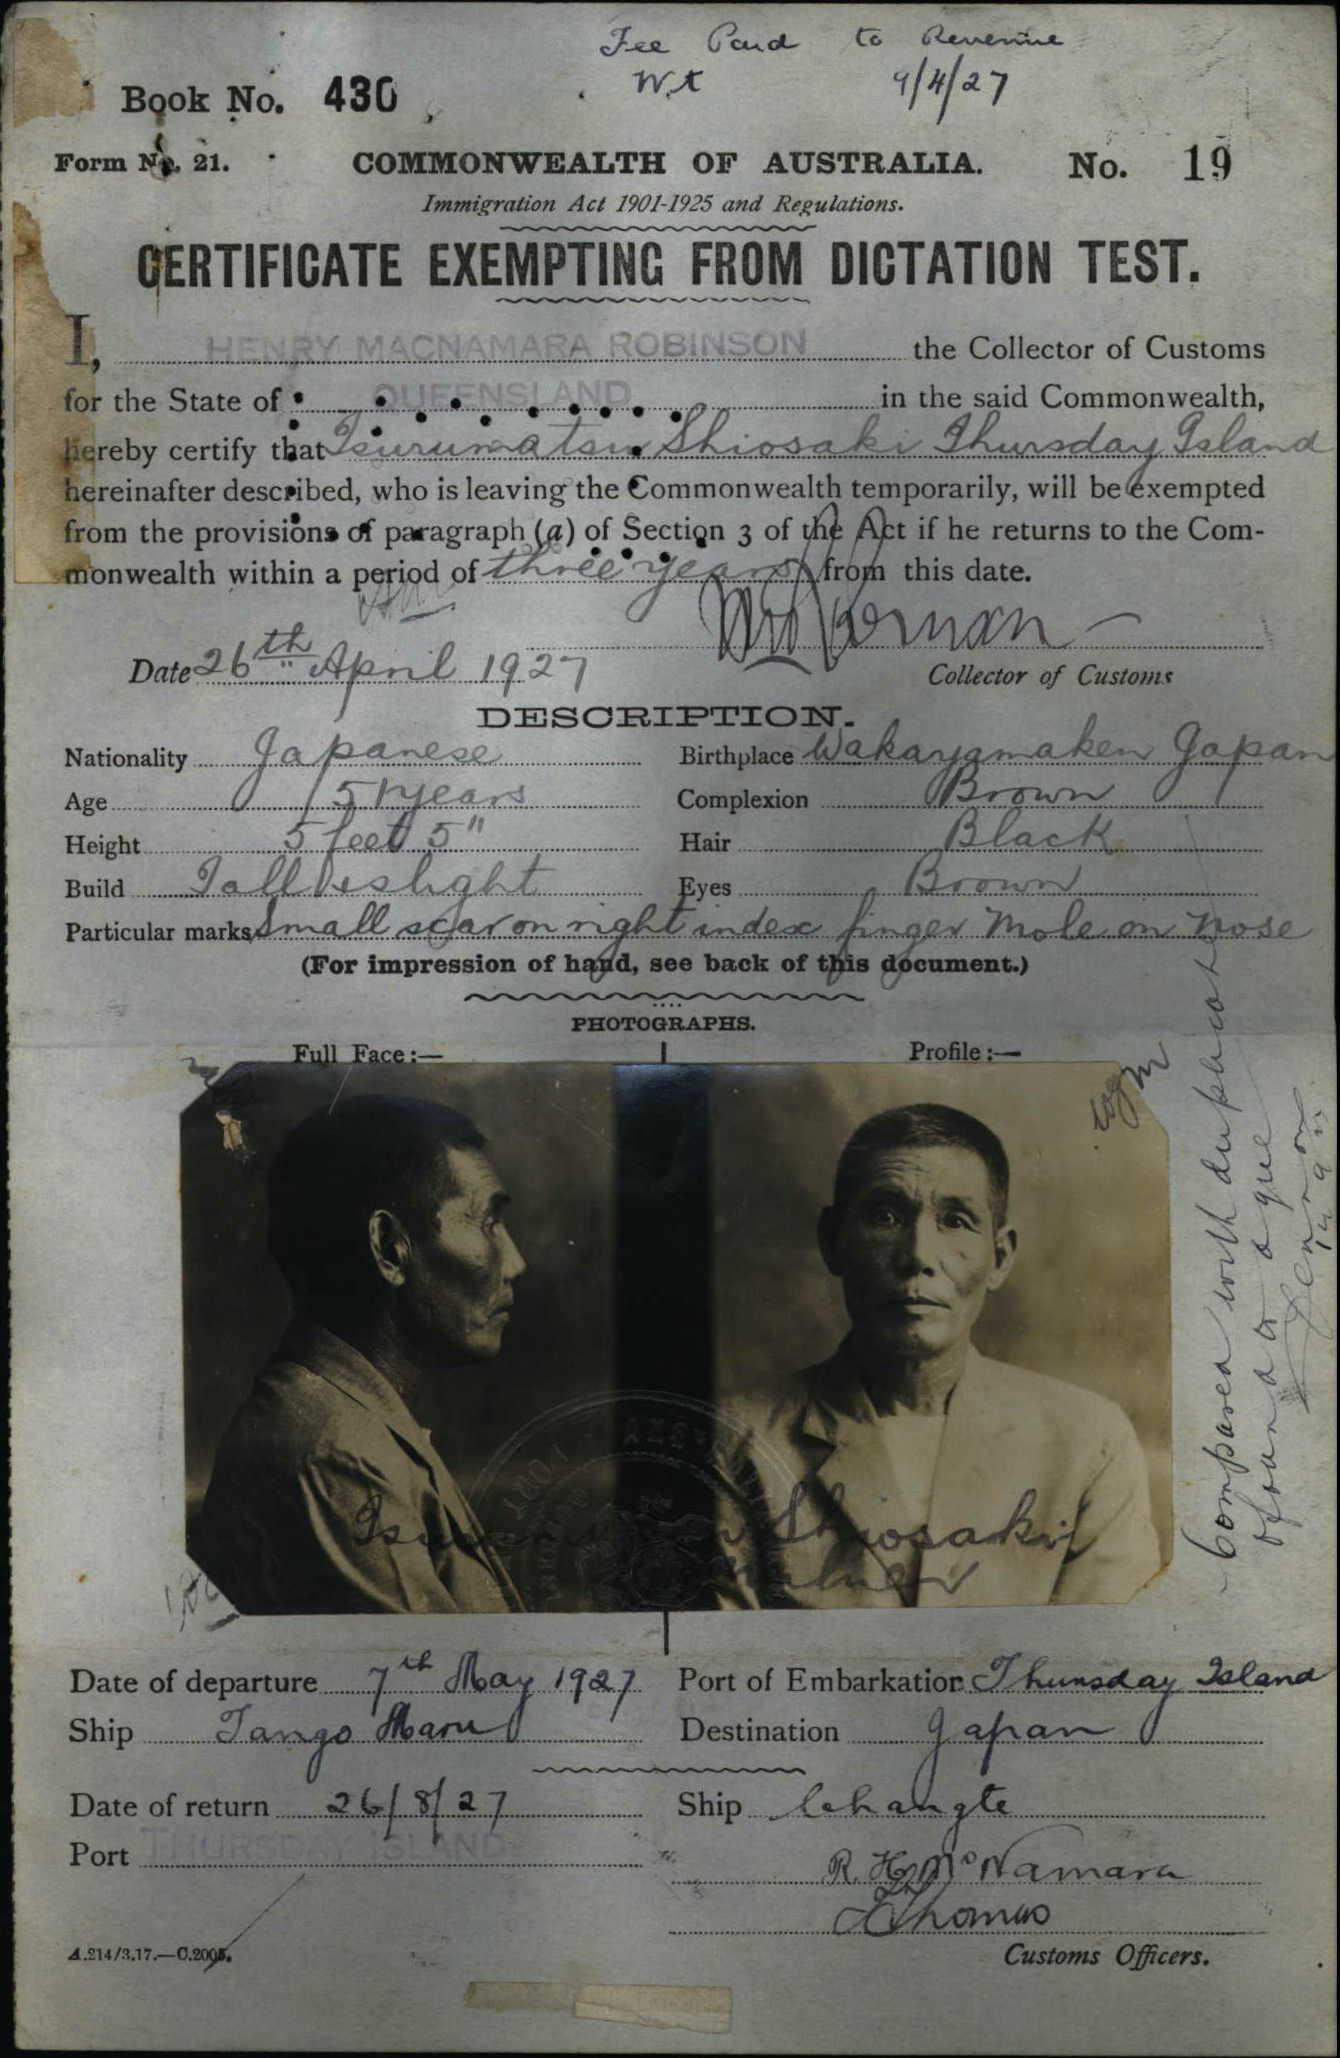 Fee Paid to Revenue
9/4/27
Book No. 430
Form No. 21.
COMMONWEALTH OF AUSTRALIA.
No. 19
Immigration Act 1901-1925 and Regulations.
CERTIFICATE EXEMPTING FROM DICTATION TEST.
I, HENRY MACNAMARA ROBINSON the Collector of Customs
for the State of QUEENSLAND in the said Commonwealth,
hereby certify that Tsurumatsu Shiosaki Thursday Island
hereinafter described, who is leaving the Commonwealth temporarily, will be exempted
from the provisions of paragraph (a) of Section 3 of the Act if he returns to the Com-
monwealth within a period of three years from this date.
Date 26th April 1927
Collector of Customs
DESCRIPTION.
Nationality Japanese Birthplace Wakayamaken Japan
Age 51 years Complexion Brown
Height 5 feet 5" Hair Black
Build Tall & slight Eyes Brown
Particular marks Small scar on right index finger Mole on nose
(For impression of hand, see back of this document.)
PHOTOGRAPHS.
Full Face:— Profile:—
Shiosaki
Compared with duplicate
found to agree
Date of departure 7th May 1927 Port of Embarkation Thursday Island
Ship Tango Maru Destination Japan
Date of return 26/8/27 Ship Changte
Port THURSDAY ISLAND
R. H. McNamara
Thomas
A.214/3.17.—C.2005.
Customs Officers.